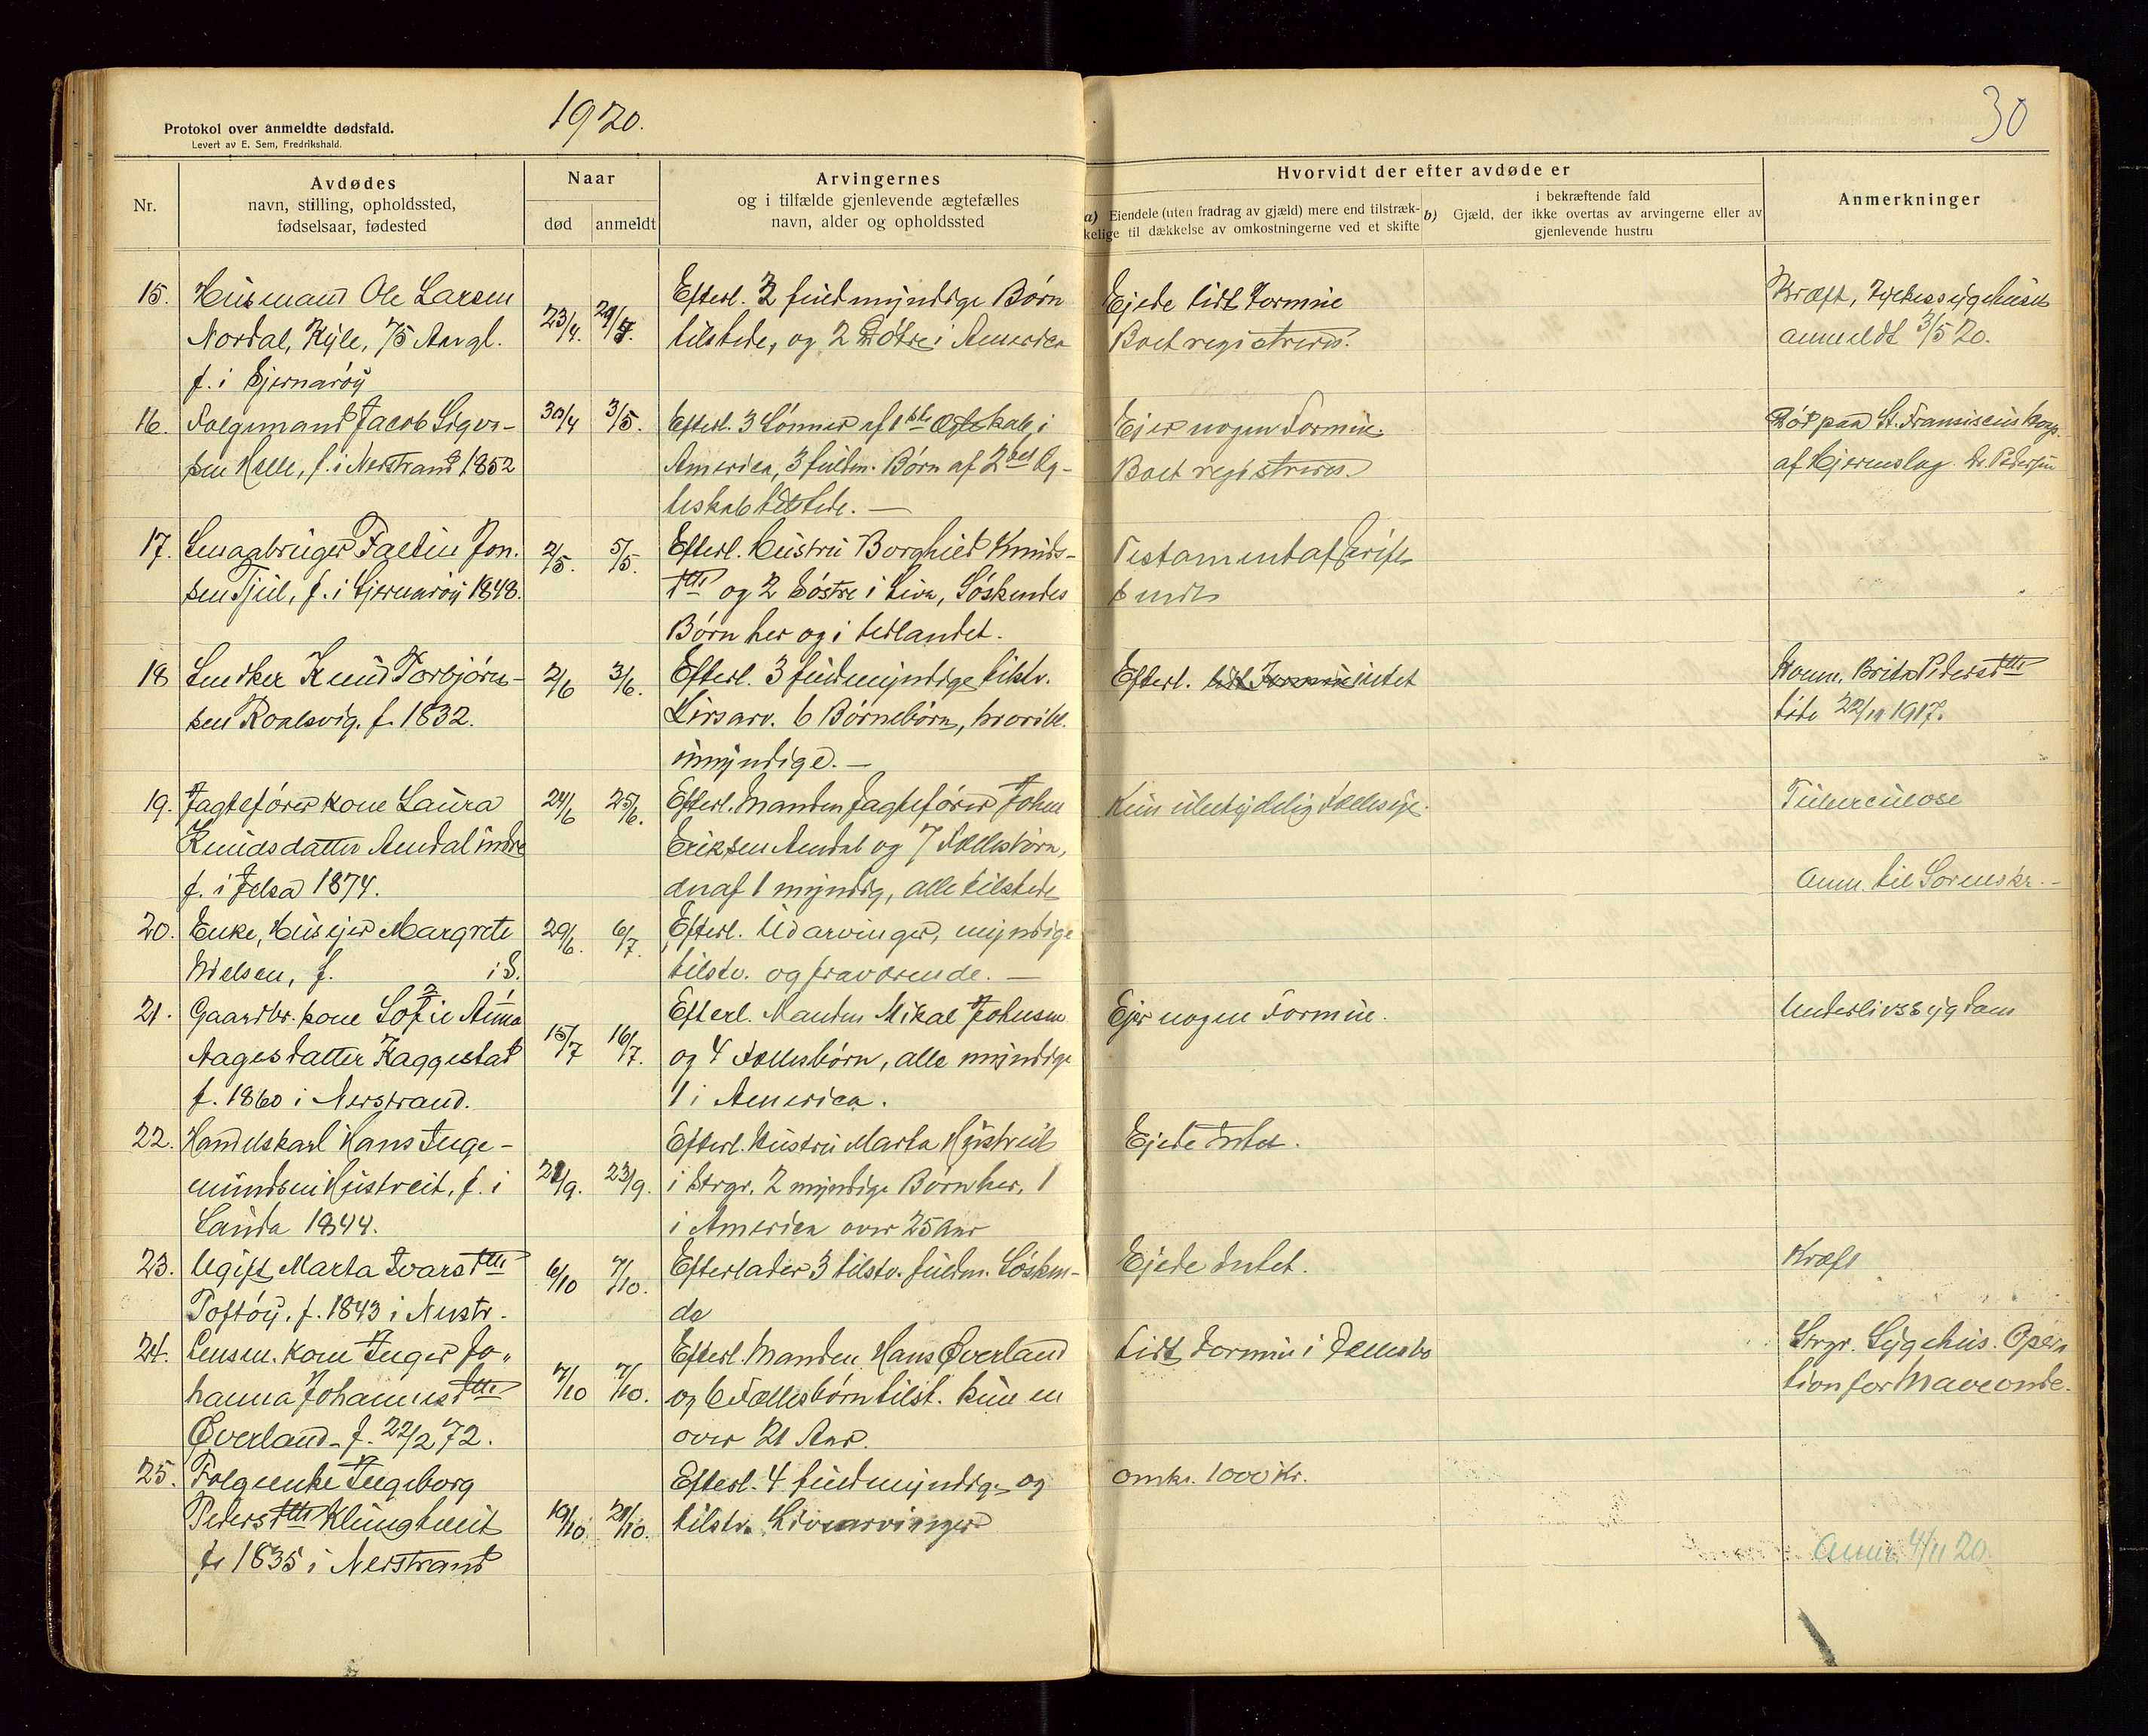 Protokol over anmeldte dødsfald.
Levert av E. Sem, Fredrikshald.
1920.
30
Nr.
Avdødes
navn, stilling, opholdssted,
fødselsaar, fødested
Naar
død
anmeldt
Arvingernes
og i tilfælde gjenlevende ægtefælles
navn, alder og opholdssted
Hvorvidt der efter avdøde er
a) Eiendele (uten fradrag av gjæld) mere end tilstræk-
kelige til dækkelse av omkostningerne ved et skifte
i bekræftende fald
b) Gjæld, der ikke overtas av arvingerne eller av
gjenlevende hustru
Anmerkninger
15. Husmand Ole Larsen
Nordal, Kyle, 75 Aar gl.
f. i Sjernarøy
23/4.
Efterl. 2 fuldmyndige Børn
tilstede, og 2 Døtre i America
Ejede lidt Formue
Boet registreres.
Kræft, Sygehuset
anmeldt 3/5 20.
16. Folgemand Jacob Sigva-
sen Helle, f. i Nerstrand 1852
30/4 3/5.
Efterl. 3 Sønner af 1ste Ægteskab, i
America, 3 fuldm. Børn af 2det Æg-
teskab tilstede. —
Ejer nogen Formue.
Boet registreres.
Død paa St. Fransiscus Hosp.
af Hjerneslag. Dr. Pedersen
17. Smaabruger Faltin Jon-
sen Tjul, f. i Sjernarøy 1848.
2/5. 5/5.
Efterl. Hustru Borghild Knuds-
dtr og 2 Søstre i Live, Søskendes
Børn her og i Udlandet.
Testamentafskrift
sendt
18 Snedker Knud Torbjørn-
sen Roalsvig, f. 1832.
2/6 3/6.
Efterl. 3 fuldmyndige tilstv.
Livsarv. 6 Børnebørn, hvoribl.
umyndige. —
Efterl. lidt Formue intet
Konen, Brita Pedersdtr
døde 22/11 1917.
19. Jagtefører kone Laura
Knudsdatter Amdal indre
f. i Jelsa 1874.
24/6 25/6.
Efterl. Manden Jagtefører Johan
Eriksen Amdal og 7 Fællesbørn,
deraf 1 myndig, alle tilstede
Kun ubetydelig Fælleseje.
Tuberculose
Anm. til Sorenskr. -
20. Enke, Husejer Margrete
Nielsen, f. i S.
29/6. 6/7.
Efterl. Udarvinger, myndige
tilstv. og fraværende. —
21. Gaardbr. kone Sofie Anna
Aagesdatter Haggestad
f. 1860 i Nerstrand.
15/7 16/7.
Efterl. Manden Mikal Johnsen
og 4 Fællesbørn, alle myndige
1 i America.
Ejer nogen Formue.
Underlivssygdom
22. Handelskarl Hans Inge-
mundsen Hustveit, f. i
Sauda 1844.
21/9. 23/9.
Efterl. Hustru Marta Hustveit
i Strgr. 2 myndige Børn her, 1
i America over 25 Aar
Ejede Intet.
23. Ugift Marta Ivarsdtr
Toftøy, f. 1843 i Nerstr.
6/10 7/10.
Efterlader 3 tilstv. fuldm. Søsken-
de
Ejede Intet.
Kræft
24. Lensm. kone Inger Jo-
hanna Johannesdtr
Øverland - f. 22/2 72.
7/10 7/10.
Efterl. Manden Hans Øverland
og 6 Fællesbørn tilst. kun en
over 21 Aar.
Lidt Formue i Fællesbo
Strgr. Sygehus. Opera
tion for Maveonde.
25. Folgeenke Ingeborg
Pedersdtr Klungtveit
f. 1835 i Nerstrand
19/10 21/10.
Efterl. 4 fuldmyndige og
tilstv. Livsarvinger
omkr. 1000 Kr.
Anm. 4/11 20.